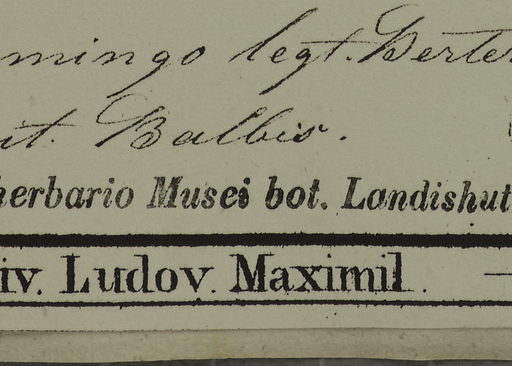 mingo legt. Berter
ut. Balbis.
herbario Musei bot. Landishut
iv. Ludov. Maximil.